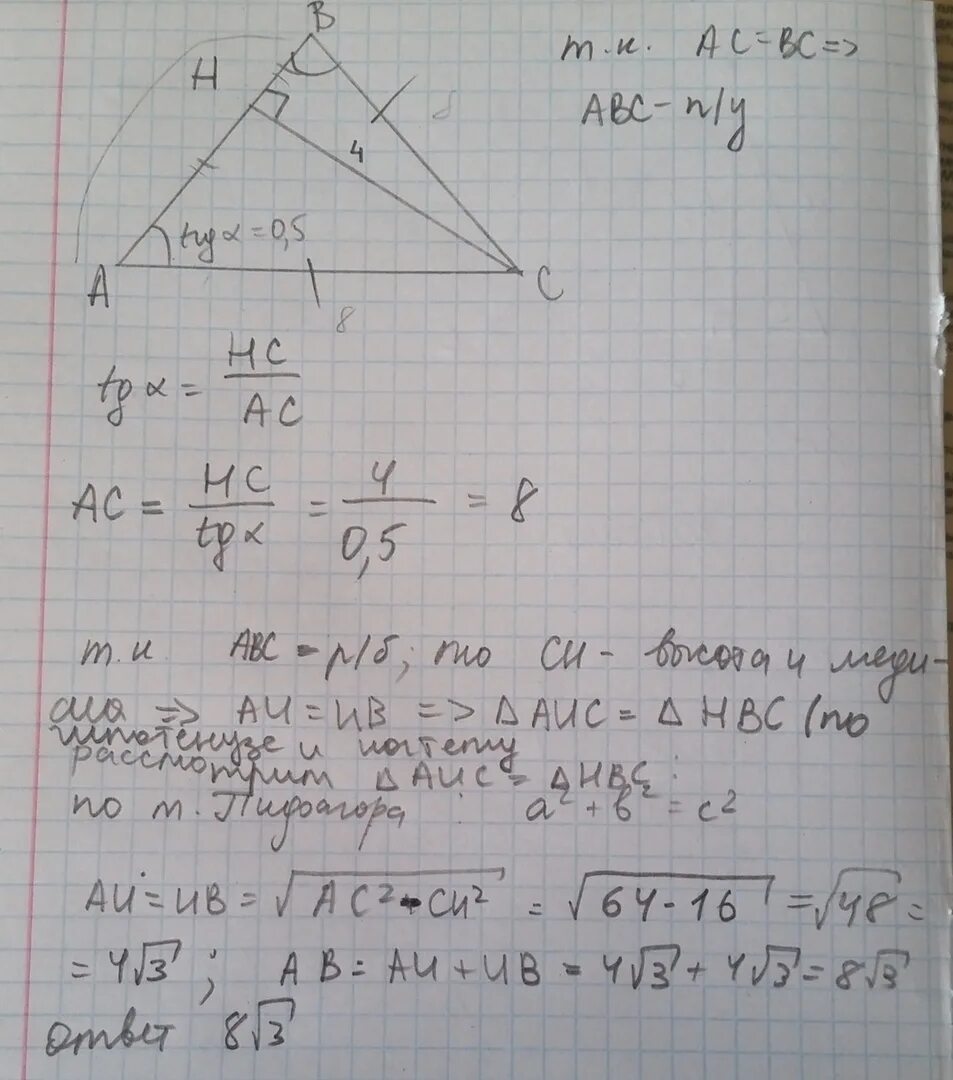 B
т.к. AC=BC=>
H
ABC-п/у
4
tgα=0,5
A
C
8
tgα = HC/AC
AC = HC/tgα = 4/0,5 = 8
т.к ABC = р/б; то CH - высота и меди-
ана => AH=HB => ΔAHC = ΔHBC (по
гипотенузе и катету
рассмотрим ΔAHC = ΔHBC :
по т. Пифагора : a²+b²=c²
AH=HB = √AC²-CH² = √64-16 = √48 =
= 4√3 ; AB = AH+HB = 4√3+4√3=8√3
ответ 8√3